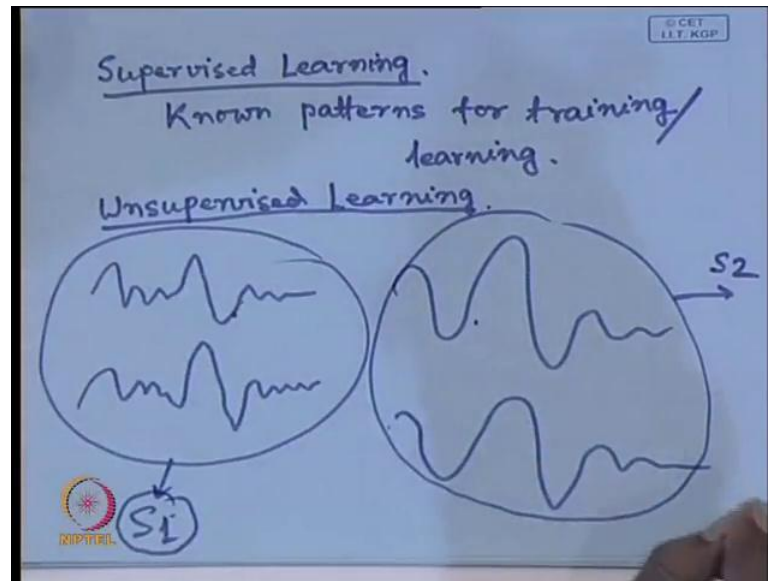 © CET
I.I.T. KGP
Supervised Learning.
Known patterns for training/
learning.
Unsupervised Learning.
S2
S1
NPTEL